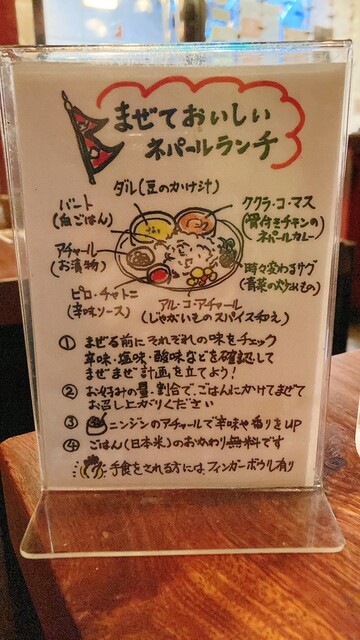 まぜておいしい
ネパールランチ
ダル(豆のかけ汁)
バート
(白ごはん)
ククラ・コ・マス
(骨付きチキンの
ネパールカレー)
アチャール
(お漬物)
時々変わるサグ
(青菜の炒めもの)
ピロ・チャトニ
(辛味ソース)
アル・コ・アチャール
(じゃがいものスパイス和え)
① まぜる前にそれぞれの味をチェック
辛味・塩味・酸味などを確認して
まぜまぜ計画を立てよう!
② お好みの量・割合で、ごはんにかけてまぜて
お召し上がりください
③ ニンジンのアチャールで辛味や香りをUP
④ ごはん(日本米)のおかわり無料です
手食をされる方には、フィンガーボウル有り